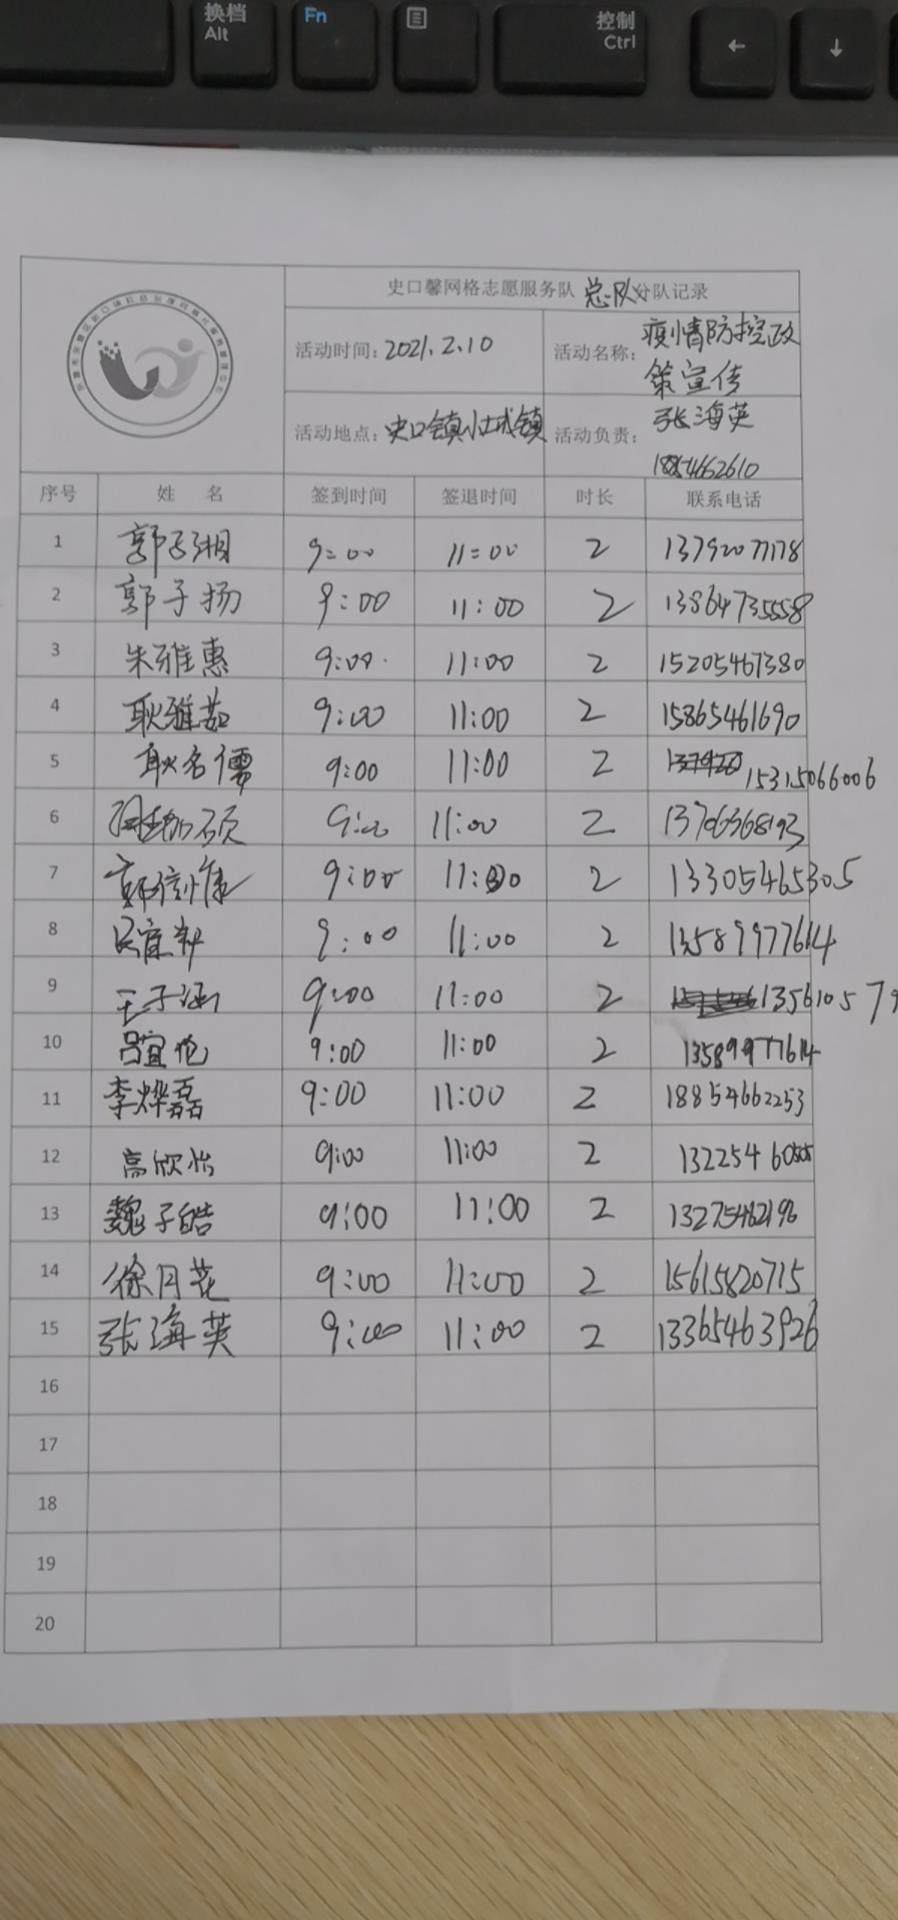 换档
Alt
Fn
控制
Ctrl
←
↓
史口馨网格志愿服务队 总队分队记录
活动时间: 2021.2.10 活动名称: 疫情防控政
策宣传
活动地点: 史口镇小城镇 活动负责: 张海英
18854662610
序号 姓 名 签到时间 签退时间 时长 联系电话
1 郭子湘 9:00 11:00 2 13792077178
2 郭子扬 9:00 11:00 2 13864735558
3 朱雅惠 9:00 11:00 2 15205467380
4 耿雅茹 9:00 11:00 2 15865461690
5 耿名儒 9:00 11:00 2 15315066006
6 9:00 11:00 2 13706368193
7 9:00 11:00 2 13305465305
8 9:00 11:00 2 13589977614
9 王子涵 9:00 11:00 2 135610579
10 吕宜伦 9:00 11:00 2 13589977614
11 李烨磊 9:00 11:00 2 18854662253
12 高欣怡 9:00 11:00 2 13225460505
13 魏子皓 9:00 11:00 2 13275462196
14 徐月花 9:00 11:00 2 15615820715
15 张海英 9:00 11:00 2 13365463926
16
17
18
19
20